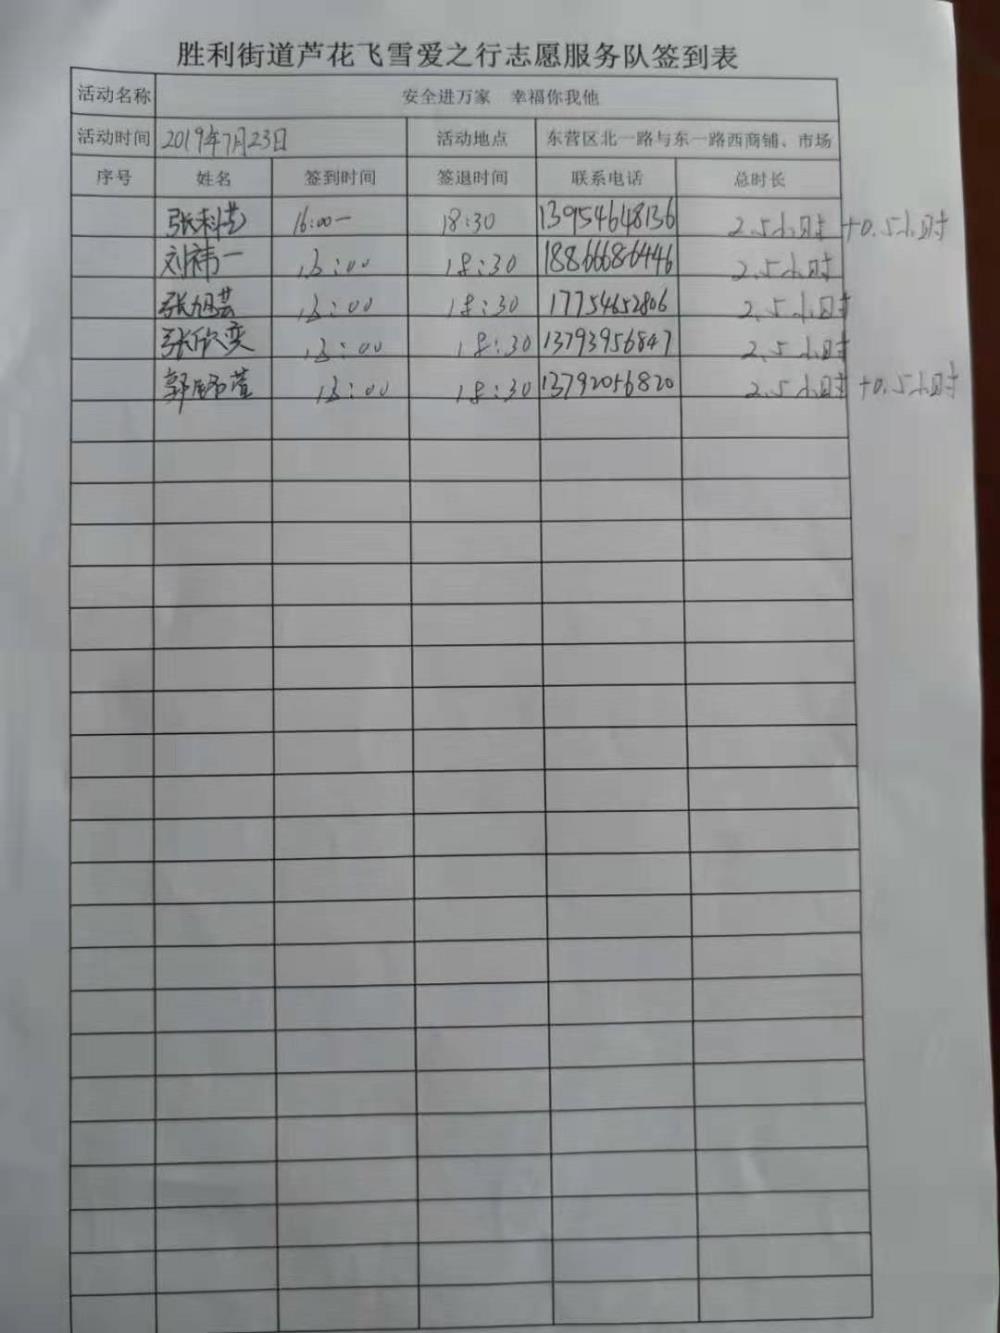 胜利街道芦花飞雪爱之行志愿服务队签到表
活动名称 安全进万家 幸福你我他
活动时间 2019年7月23日 活动地点 东营区北一路与东一路西商铺、市场
序号 姓名 签到时间 签退时间 联系电话 总时长
张利艺 16:00一 18:30 13954648136 2.5小时 +0.5小时
刘祎一 16:00 18:30 18866686446 2.5小时
张旭芸 16:00 18:30 17754652806 2.5小时
张欣奕 16:00 18:30 13793956847 2.5小时
郭 萱 16:00 18:30 13792056820 2.5小时 +0.5小时